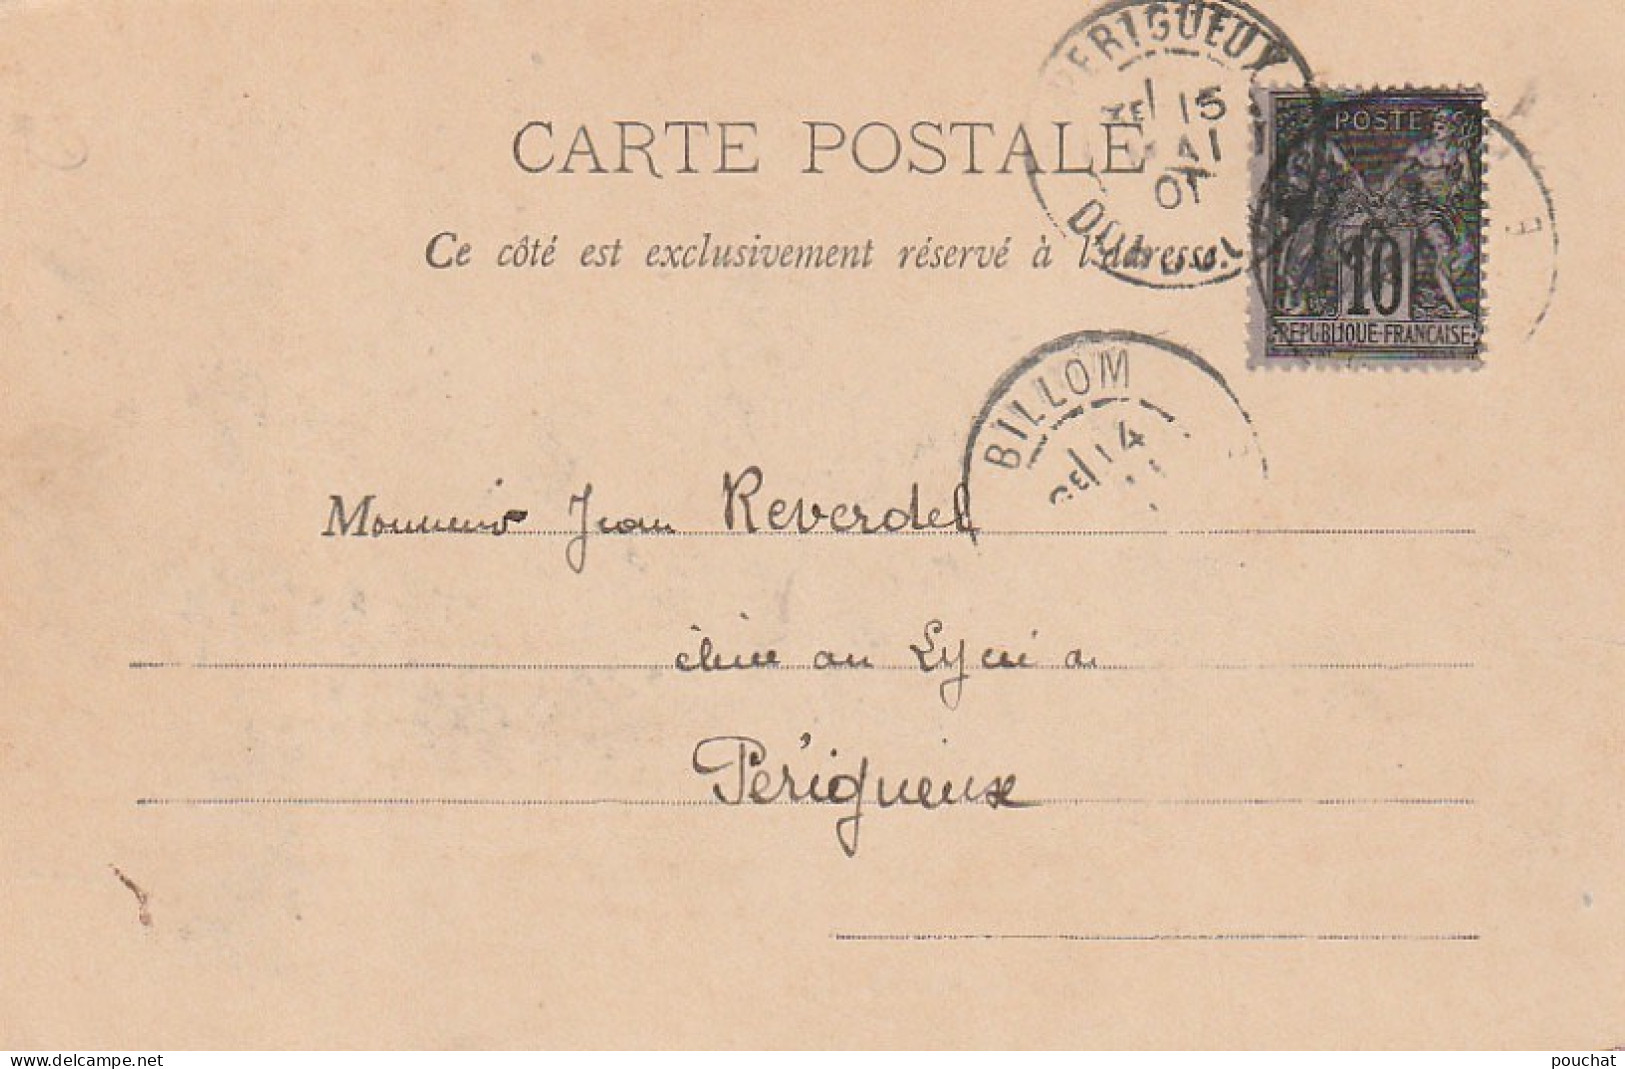 PERIGUEUX
15
MAI
01
POSTE
CARTE POSTALE
Ce côté est exclusivement réservé à l'Adresse.
10
REPUBLIQUE-FRANCAISE
BILLOM
14
Monsieur Jean Reverdel
élève au Lycée a
Périgueux
www.delcampe.net
pouchat